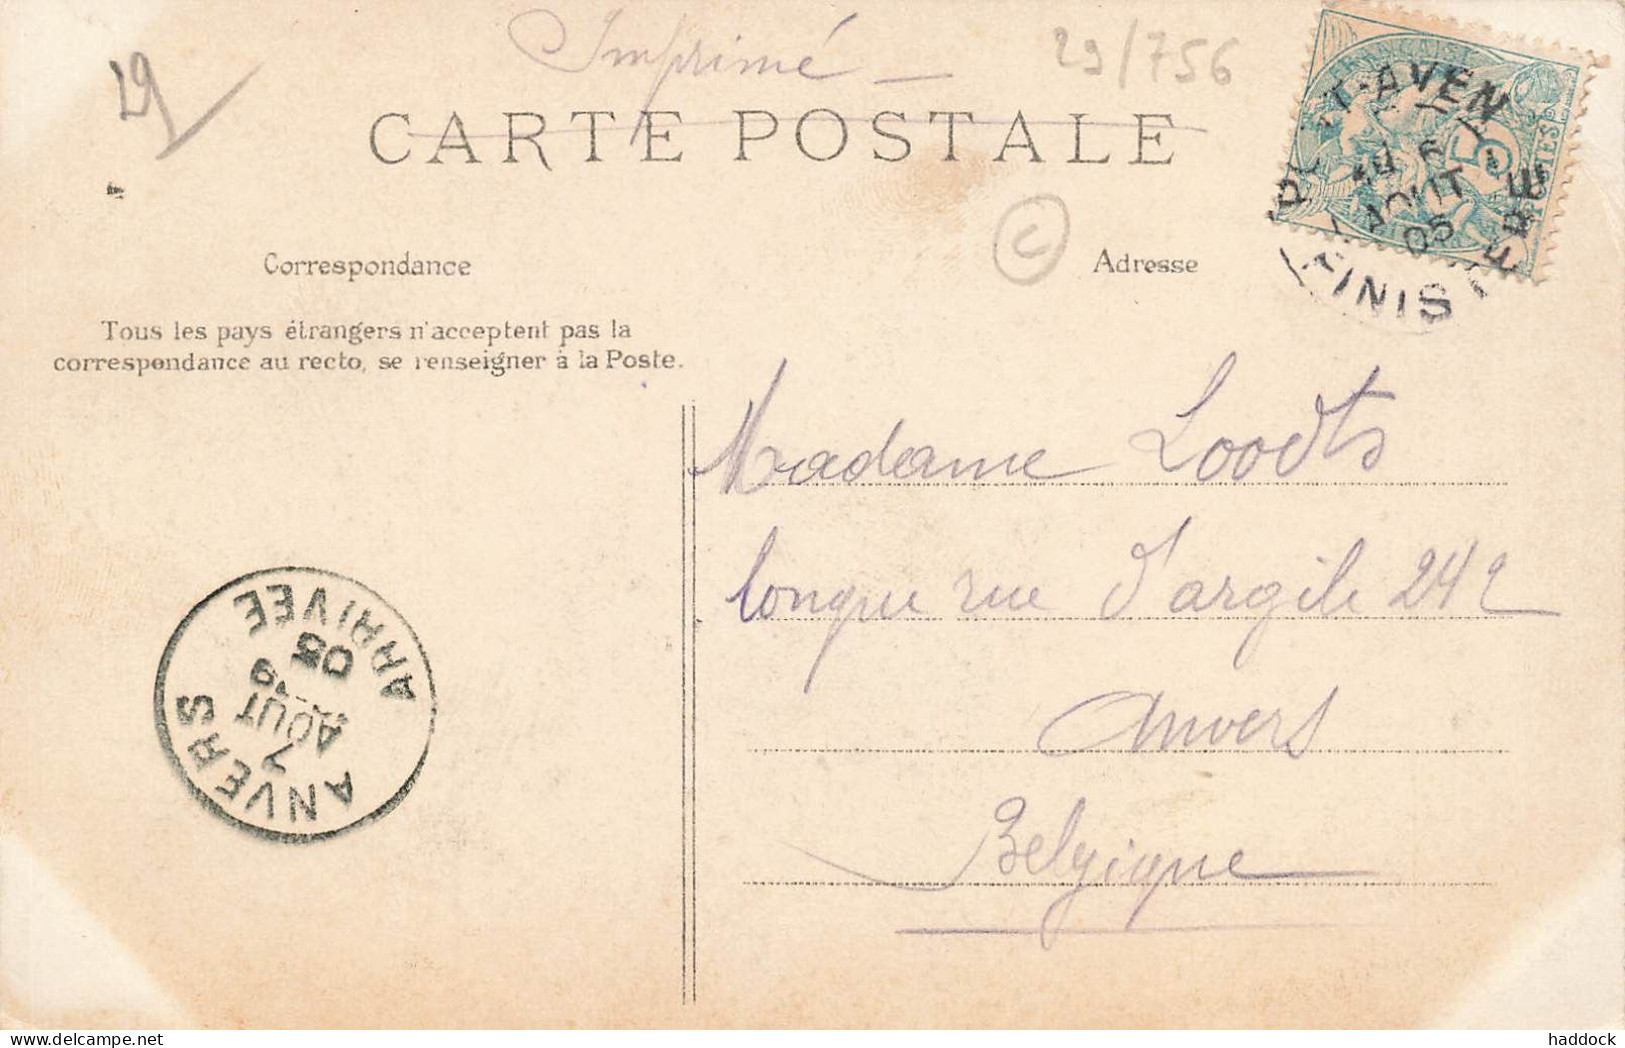 Imprimé —
29/756
29
CARTE POSTALE
C
PONT-AVEN
6
AOUT
05
FINISTERE
5
POSTES
Correspondance
Adresse
Tous les pays étrangers n'acceptent pas la
correspondance au recto, se renseigner à la Poste.
Madame Loodts
longue rue d'argile 242
Anvers
Belgique
ANVERS
7
AOUT
19
05
ARRIVÉE
haddock